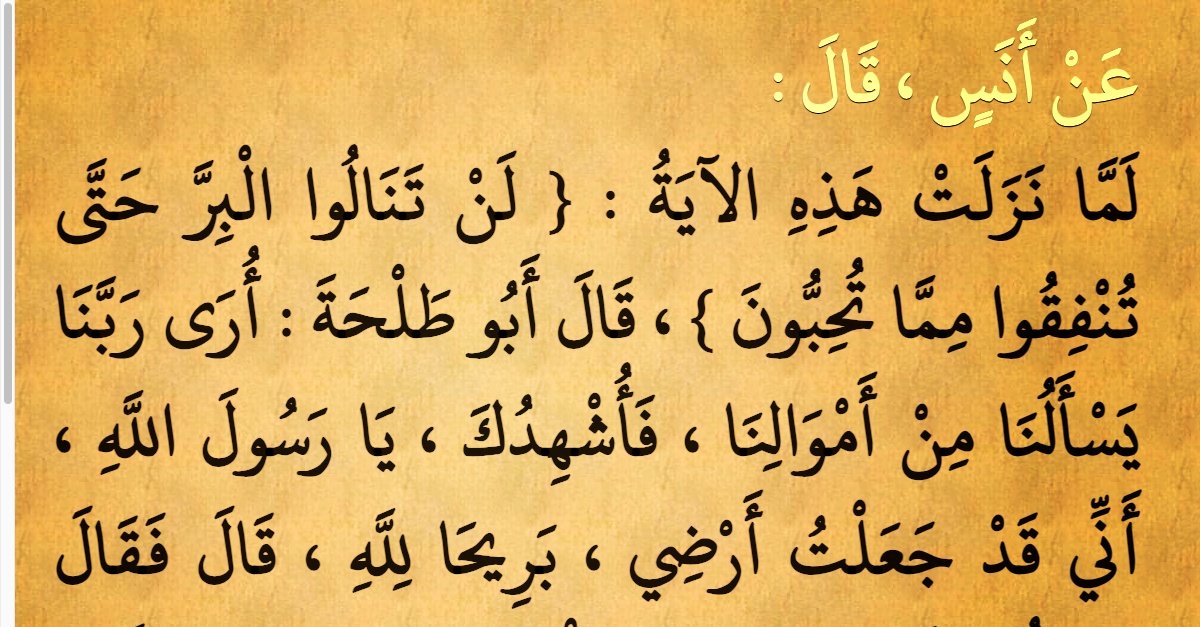 عَنْ أَنَسٍ ، قَالَ :
لَمَّا نَزَلَتْ هَذِهِ الآيَةُ : { لَنْ تَنَالُوا الْبِرَّ حَتَّى
تُنْفِقُوا مِمَّا تُحِبُّونَ } ، قَالَ أَبُو طَلْحَةَ : أُرَى رَبَّنَا
يَسْأَلُنَا مِنْ أَمْوَالِنَا ، فَأُشْهِدُكَ ، يَا رَسُولَ اللَّهِ ،
أَنِّي قَدْ جَعَلْتُ أَرْضِي ، بَرِيحَا لِلَّهِ ، قَالَ فَقَالَ